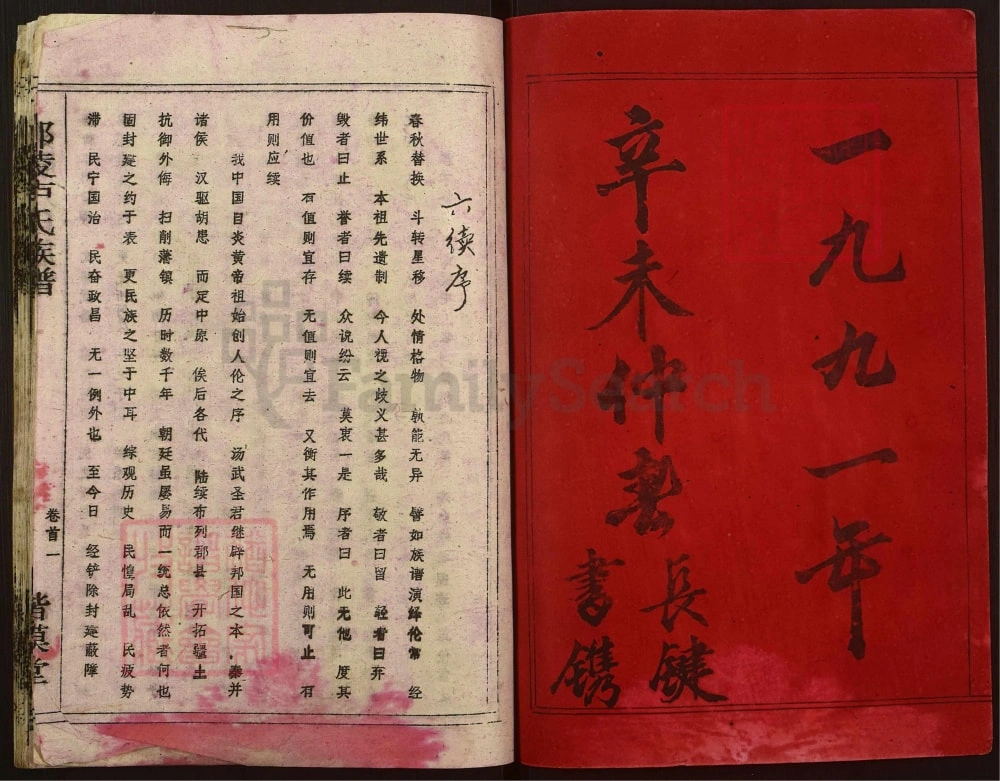 一九九一年
辛未仲春
長鍵
書鐫
六续序
春秋替换　斗转星移　处情格物　孰能无异　譬如族谱演绎伦常　经
纬世系　本祖先遗制　今人视之歧义甚多哉　敬者曰留　轻者曰弃
毁者曰止　誉者曰续　众说纷云　莫衷一是　序者曰　此无他　度其
价值也　有值则宜存　无值则宜去　又衡其作用焉　无用则可止　有
用则应续
我中国自炎黄帝祖始创人伦之序　汤武圣君继肆邦国之本　秦并
诸侯　汉驱胡患　而定中原　俟后各代　陆续布列郡县　开拓疆土
抗御外侮　扫削藩镇　历时数千年　朝廷虽屡易而一统总依然者何也
固封建之约于表　更民族之坚于中耳　综观历史　民惶局乱　民疲势
滞　民宁国治　民奋政昌　无一例外也　至今日　经铲除封建蔽障
氏族谱
卷首一
堂
FamilySearch